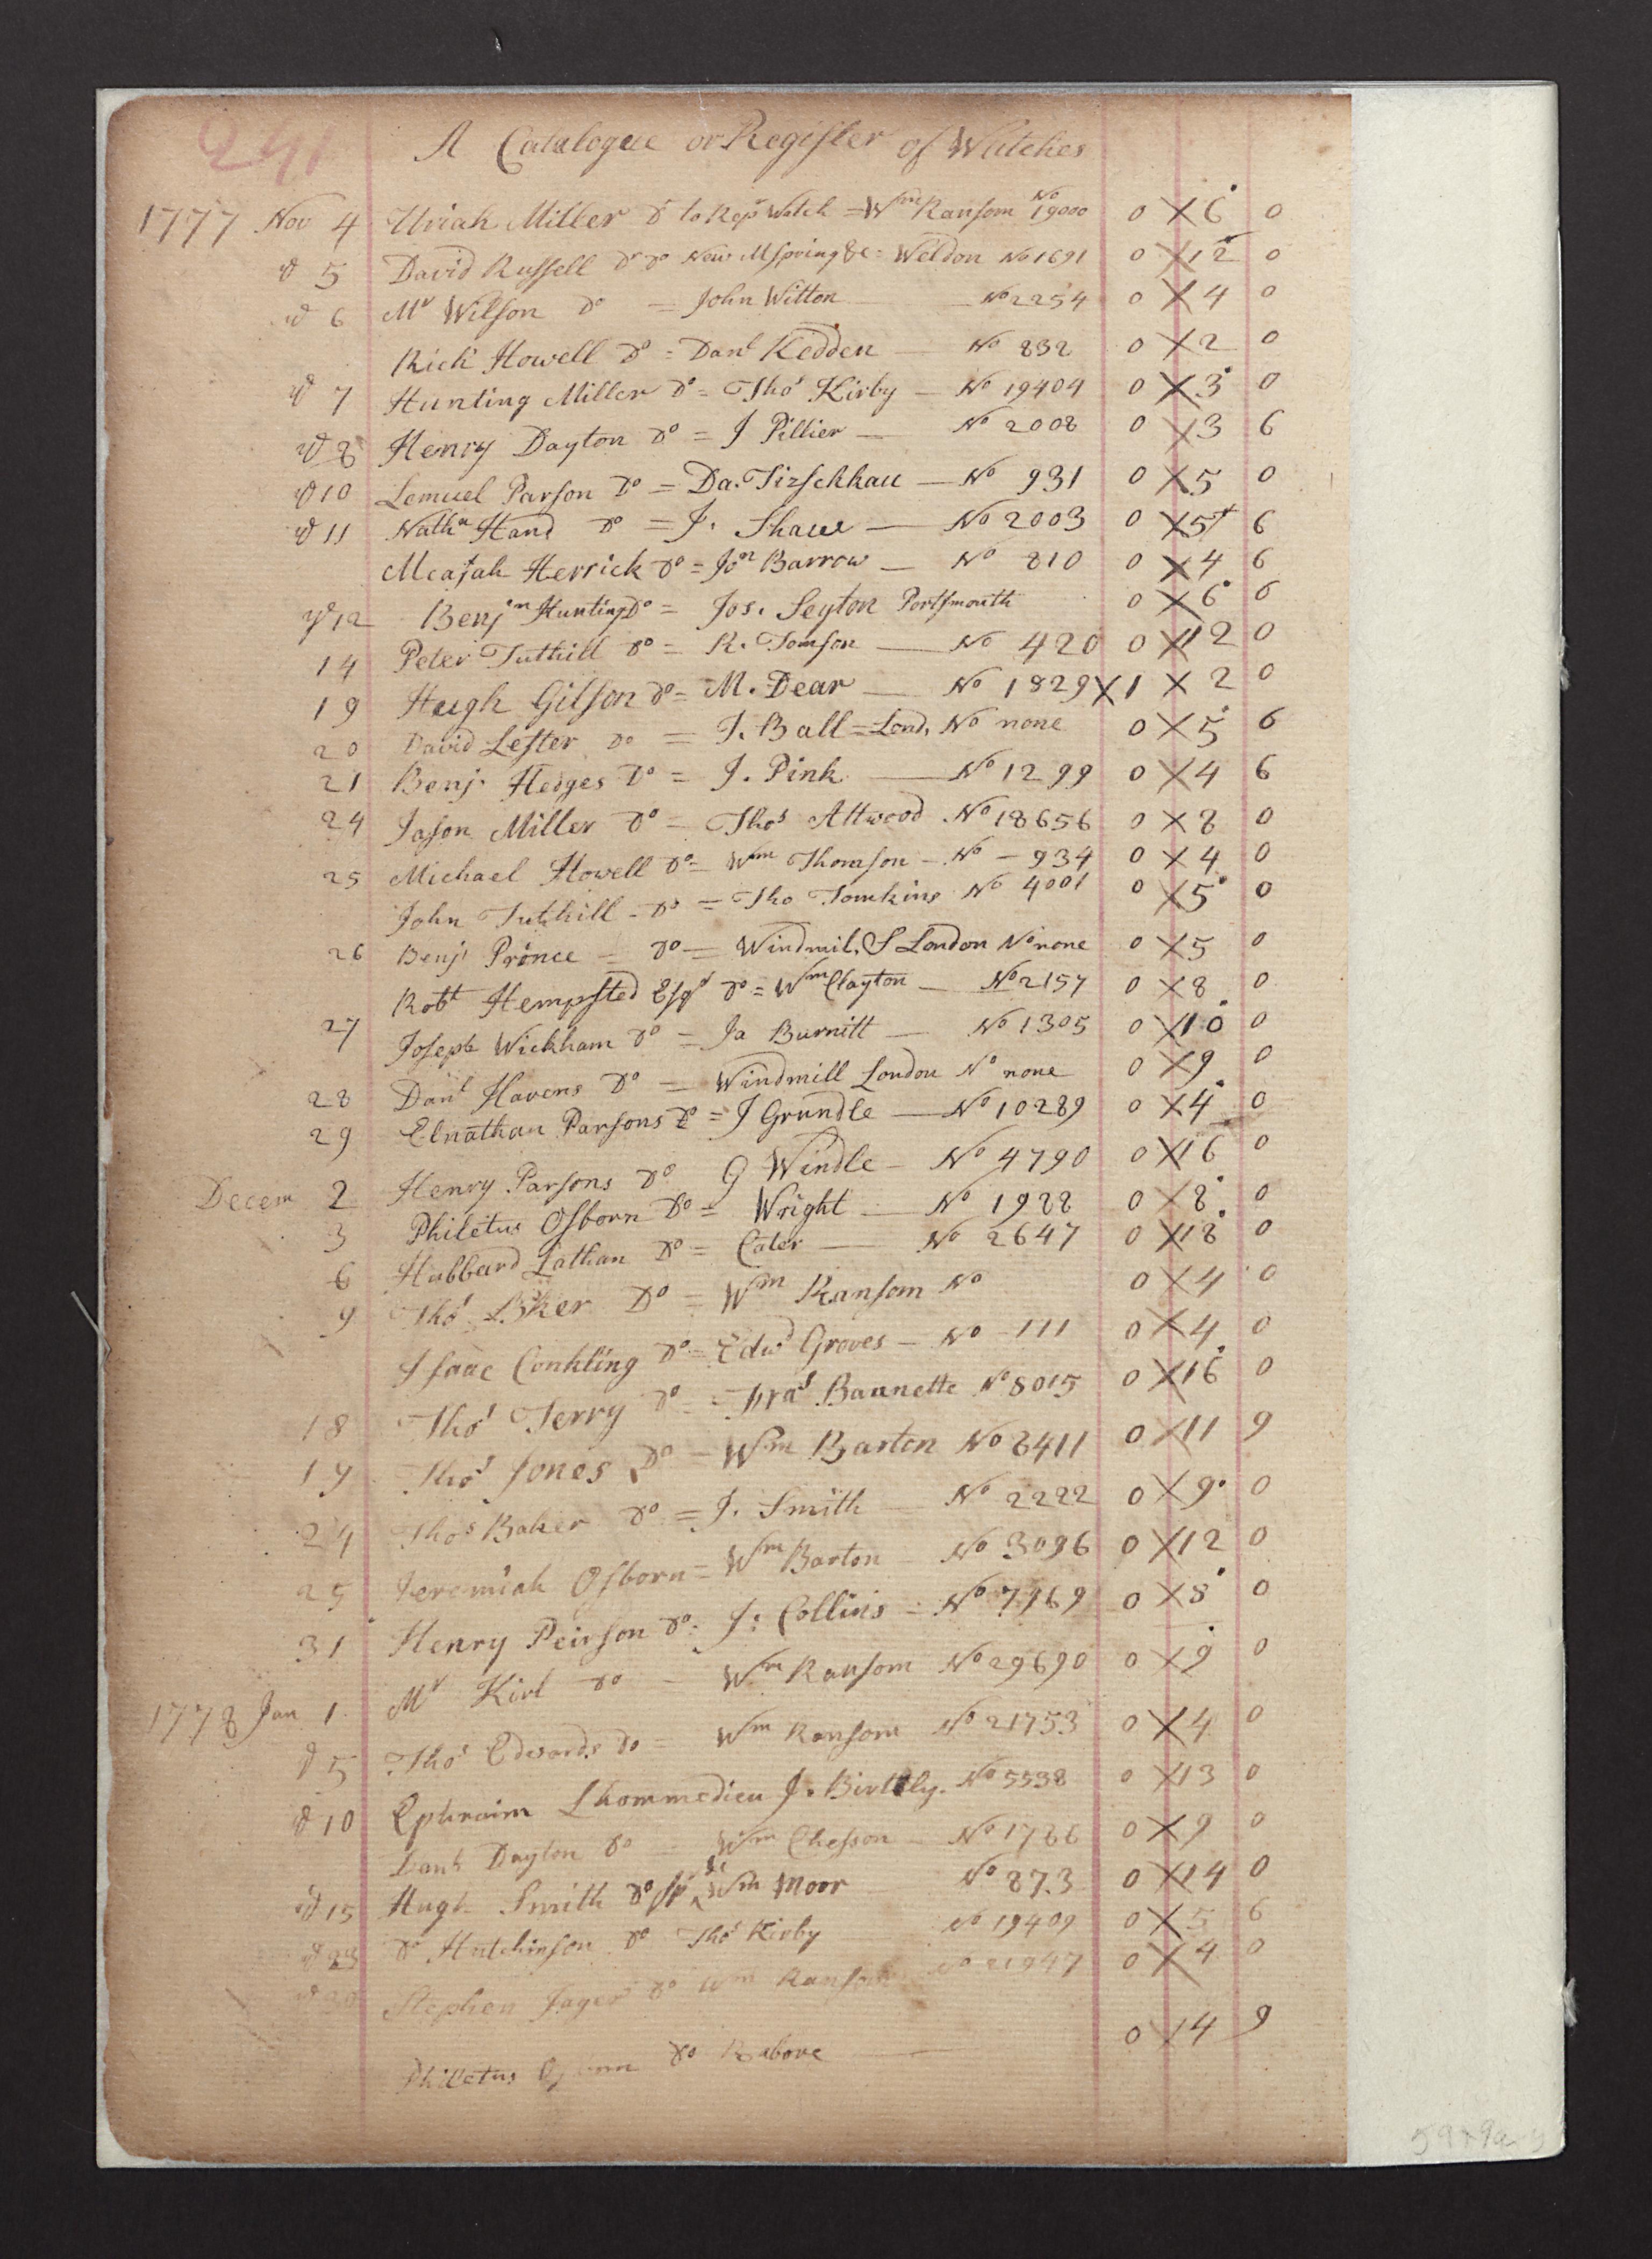 241
A Catalogue or Register of Watches
1777 Nov 4 Uriah Miller Dr to Repr Watch = Wm Ransom No 19000 0 X 6 0
d 5 David Russell Dr Do New Mspring &c = Weldon No 1691 0 X 12 0
d 6 Mr Wilson Do = John Witton No 2254 0 X 4 0
Richd Howell Do = Danl Kedden No 832 0 X 2 0
d 7 Hunting Miller Do = Thos Kirby No 19404 0 X 3 0
d 8 Henry Dayton Do = J Pillier No 2008 0 X 3 6
d 10 Lemuel Parson Do = Da. Tirschkau No 931 0 X 5 0
d 11 Nathn Hand Do = J. Shaw No 2003 0 X 5 6
Meajah Herrick Do = Jon Barrow No 810 0 X 4 6
d 12 Benjn Hunting Do = Jos. Seyton Portsmouth 0 X 6 6
14 Peter Tuthill Do = R. Tomson No 420 0 X 12 0
19 Hugh Gilson Do = M. Dear No 1829 X 1 X 2 0
20 David Lester Do = J. Ball = Lond, No none 0 X 5 6
21 Benj. Hedges Do = J. Pink No 1299 0 X 4 6
24 Jason Miller Do = Thos Attwood No 18656 0 X 8 0
25 Michael Howell Do = Wm Thomson No 934 0 X 4 0
John Tuthill Do = Tho Tomkins No 4001 0 X 5 0
26 Benj Prince = Do = Windmil, S London No none 0 X 5 0
Robt Hempsted Esqr Do = Wm Clayton No 2157 0 X 8 0
27 Joseph Wickham Do = Ja Burnitt No 1305 0 X 10 0
28 Danl Havens Do = Windmill London No none 0 X 9 0
29 Elnathan Parsons Do = J Grundle No 10289 0 X 4 0
Decem 2 Henry Parsons Do G Windle No 4790 0 X 16 0
3 Philetus Osborn Do = Wright No 1988 0 X 8 0
6 Hubbard Lathan Do = Cater No 2647 0 X 18 0
9 Thos Do = Wm Ransom No 0 X 4 0
Isaac Conkling Do = Edwd Groves No 111 0 X 4 0
18 Thos Terry Do = Fras Bannette No 8015 0 X 16 0
19 Thos Jones Do = Wm Barton No 8411 0 X 11 9
24 Thos Baker Do = J. Smith No 2222 0 X 9 0
25 Jeremiah Osborn = Wm Barton No 3096 0 X 12 0
31 Henry Peirson Do = J: Collins = No 7469 0 X 8 0
1778 Jan 1 Mr Kirl Do Wm Ransom No 29690 0 X 9 0
d 5 Thos Edwards Do = Wm Ransom No 21753 0 X 4 0
d 10 Ephraim Lhommedieu J. Birtly. No 5538 0 X 13 0
Danl Dayton Do = Wm Chesson No 1786 0 X 9 0
d 15 Hugh Smith Do sp &c Wm Moor No 873 0 X 14 0
d 23 Dr Hutchinson Do Thos Kirby No 19409 0 X 5 6
d 30 Stephen Jager Do Wm Ransom No 21947 0 X 4 0
Philetus Do Rabove 0 X 4 9